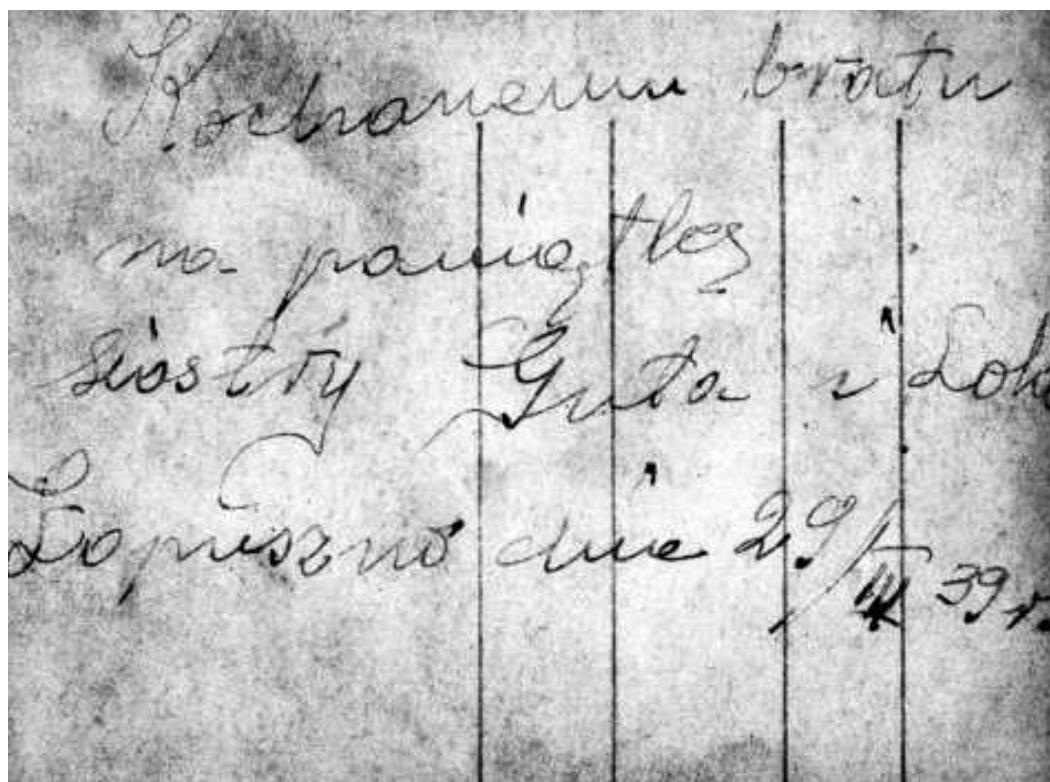 Kochanemu bratu
na pamiątkę
siostry Guta i Lola
Łopuszno dnia 29/III 39 r.